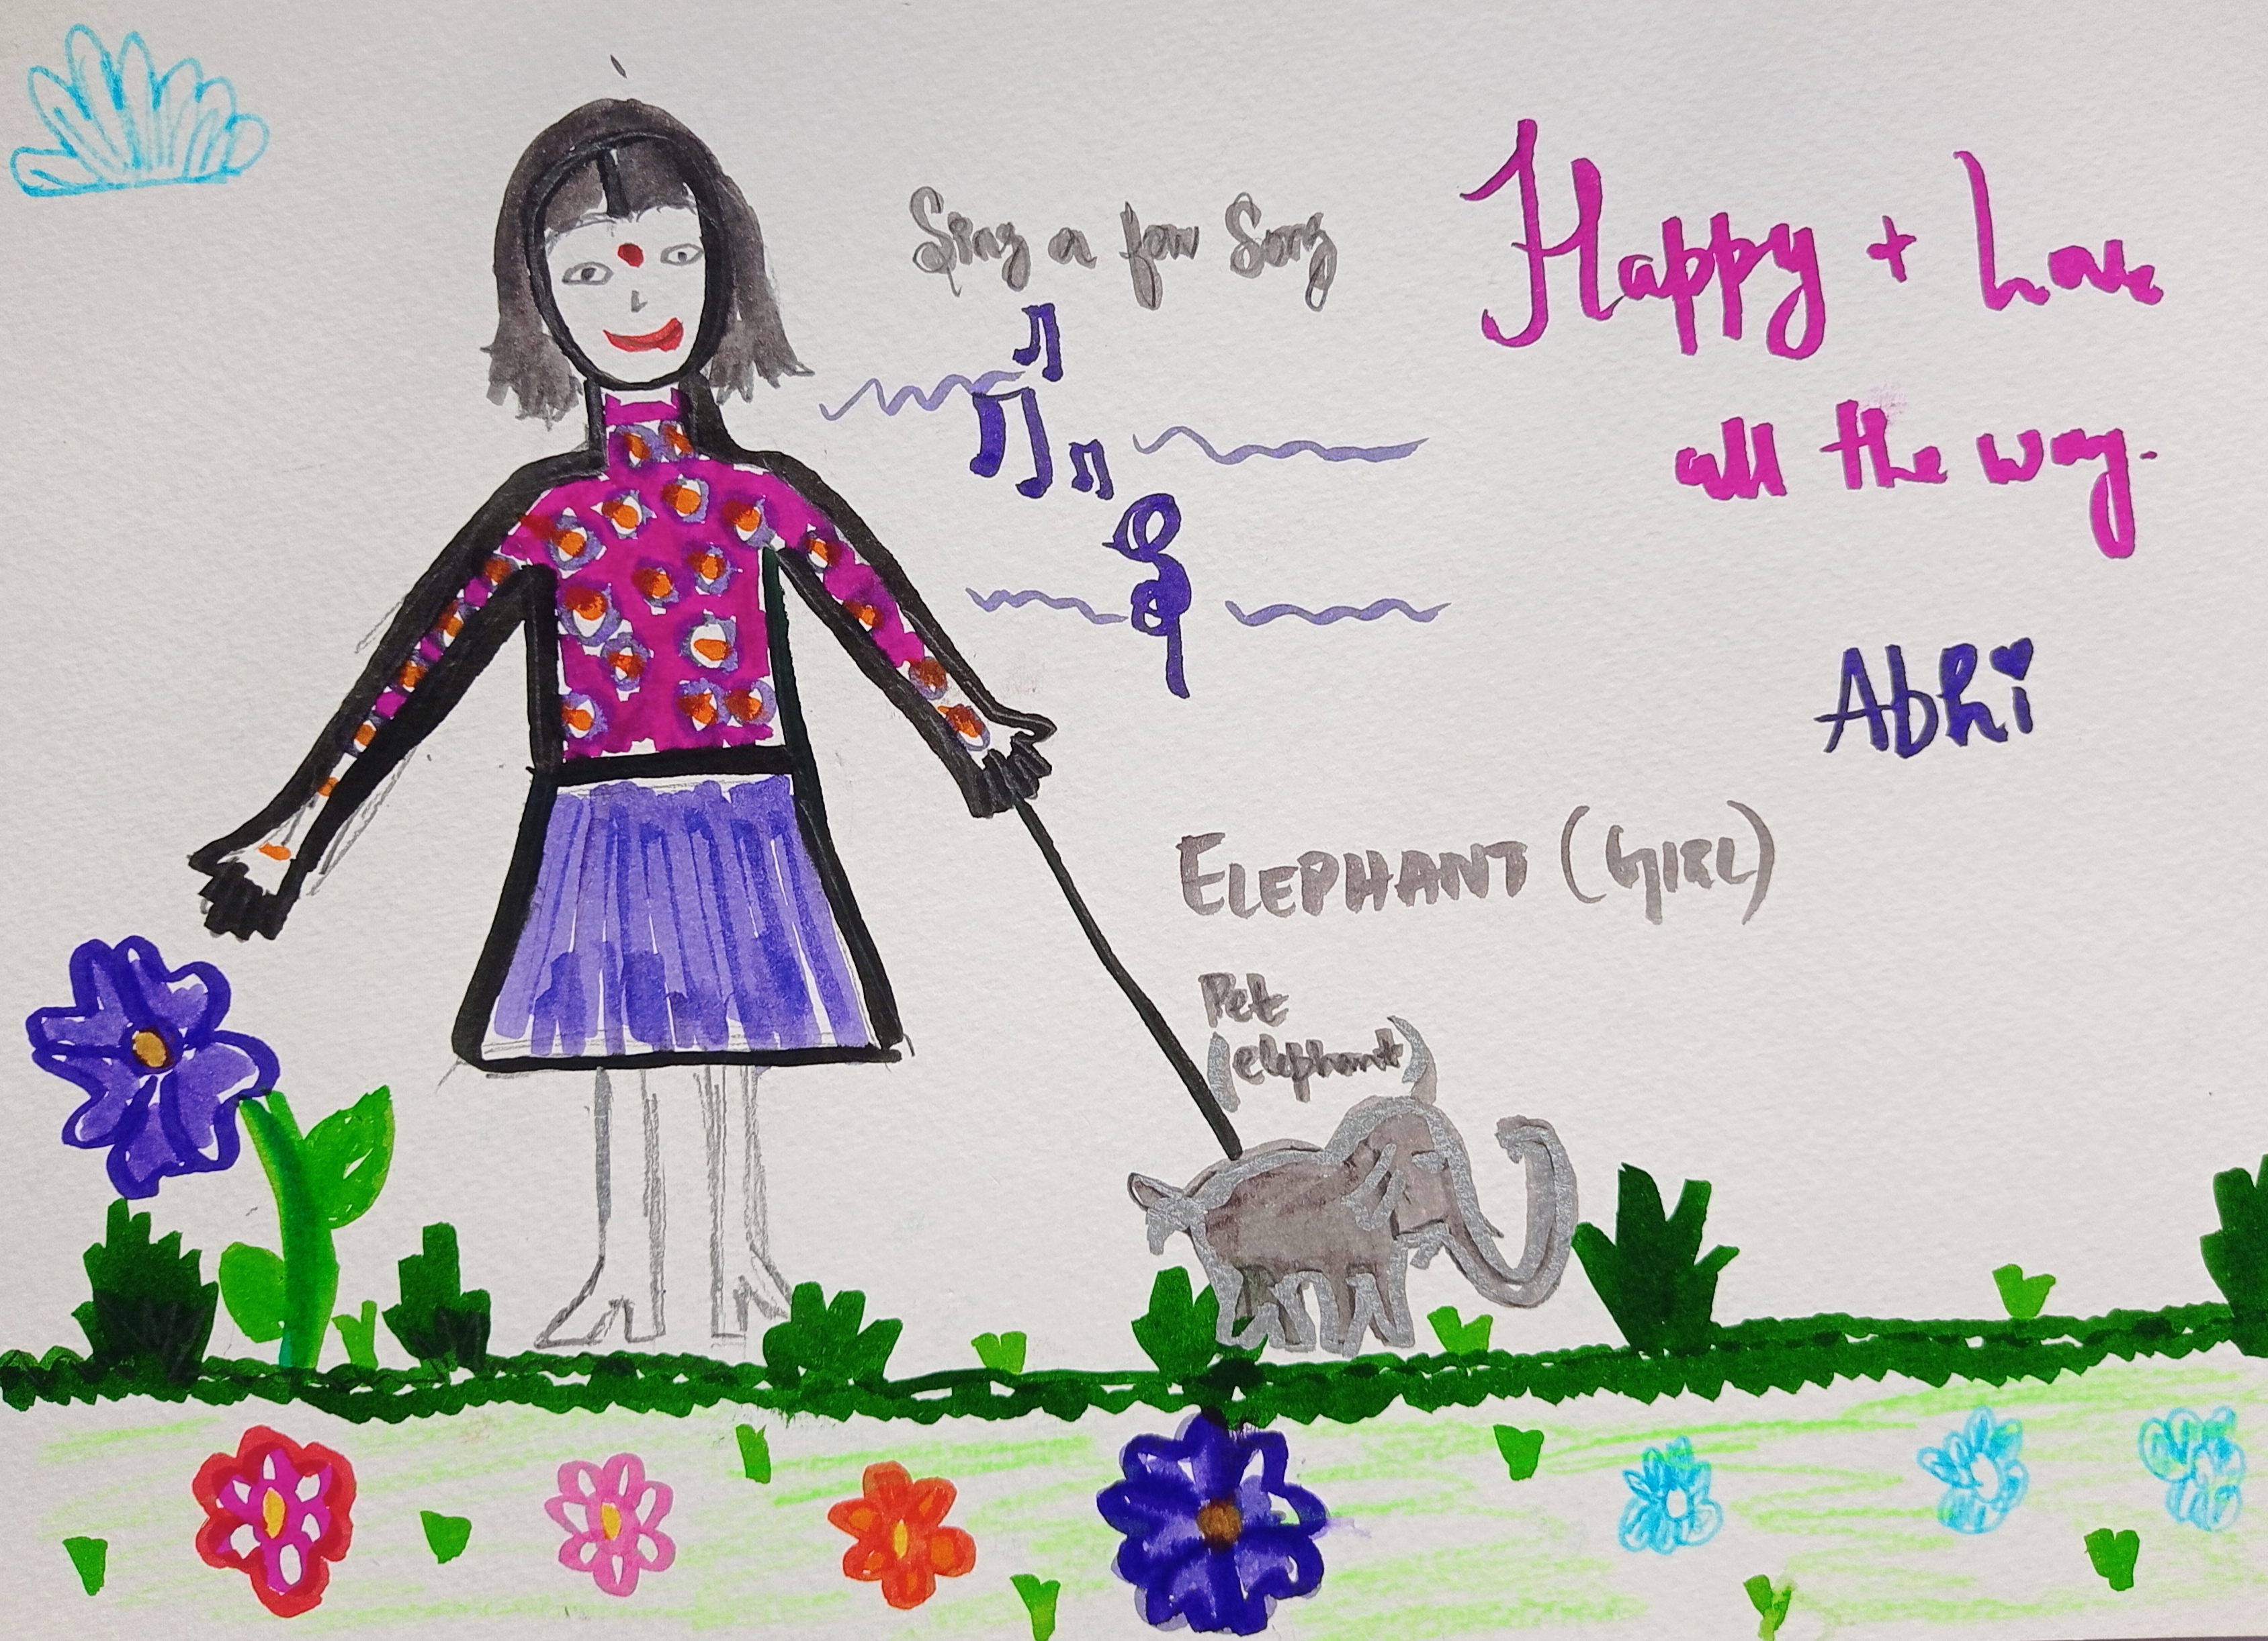 Sing a few Song
Happy + Love
all the way.
Abhi
ELEPHANT (GIRL)
Pet
(elephant)